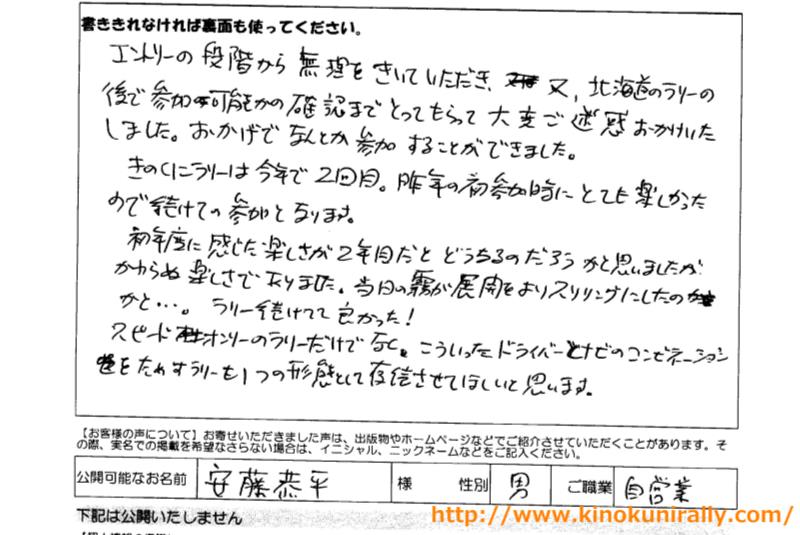 書ききれなければ裏面も使ってください。
エントリーの段階から無理をきいていただき、又、北海道のラリーの
後で参加可能かの確認までとってもらって大変ご迷惑おかけいた
しました。おかげでなんとか参加することができました。
きのくにラリーは今年で2回目。昨年の初参加時にとても楽しかった
ので続けての参加となります。
初年度に感じた楽しさが2年目だとどうなるのだろうかと思いましたが
かわらぬ楽しさでありました。当日の霧が展開をよりスリリングにしたの
かと…。ラリー続けてて良かった!
スピードオンリーのラリーだけでなく、こういったドライバーとナビのコンビネーション
をためすラリーも1つの形態として存信させてほしいと思います。
【お客様の声について】お寄せいただきました声は、出版物やホームページなどでご紹介させていただくことがあります。そ
の際、実名での掲載を希望なさらない場合は、イニシャル、ニックネームなどをご記入ください。
公開可能なお名前 安藤恭平 様 性別 男 ご職業 自営業
下記は公開いたしません
http://www.kinokunirally.com/